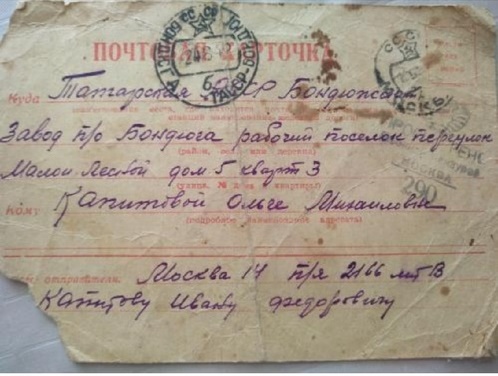 ПОЧТОВАЯ КАРТОЧКА
Куда Татарская Р Бондюжский
Завод п/о Бондюга рабочий поселок переулок
(район, село или деревня)
Малой Лесной дом 5 кварт 3
(улица, № дома квартиры)
Кому Капитовой Ольге Михаиловне
(подробное наименование адресата)
отправителя: Москва 14 п/я 2166 лит В
Капитову Ивану Федоровичу
МОСКВА
290